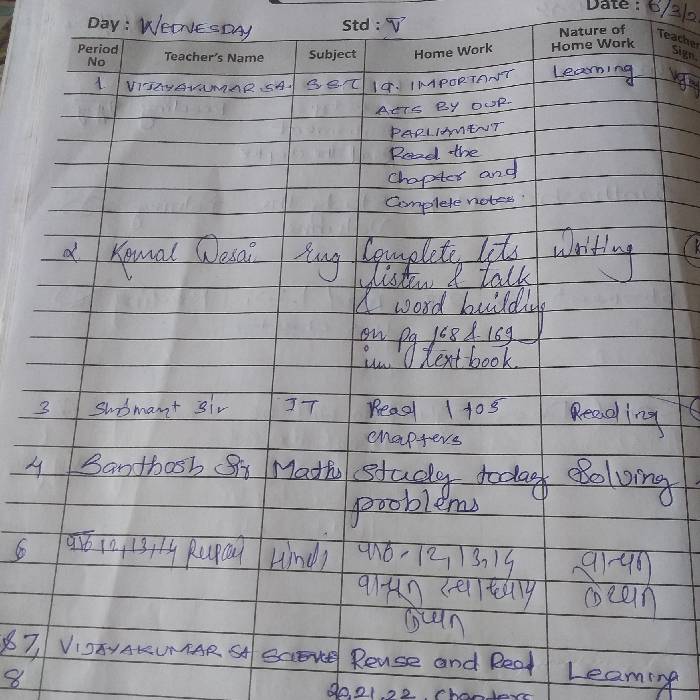 Date : 6/3/2
Day : WEDNESDAY Std : V
Period No Teacher's Name Subject Home Work Nature of Home Work Teacher Sign.
1 VIJAYAKUMAR.SA. S&T 19. IMPORTANT Learning
ACTS BY OUR
PARLIAMENT
Read the
chapter and
Complete notes.
2 Komal Desai Eng Complete lets Writing
listen & talk
& word building
on pg 168 & 169
in textbook.
3 Sir IT Read 1 to 5 Reading
chapters
4 Santhosh Sir Maths Study today Solving
problems
6 पाठ 12,13,14 Rupali Hindi पाठ - 12,13,14 वाचन
वाचन स्वाध्याय लेखन
लेखन
7, VIJAYAKUMAR SA SCIENCE Revise and Read Learning
8 20,21,22. Chapters